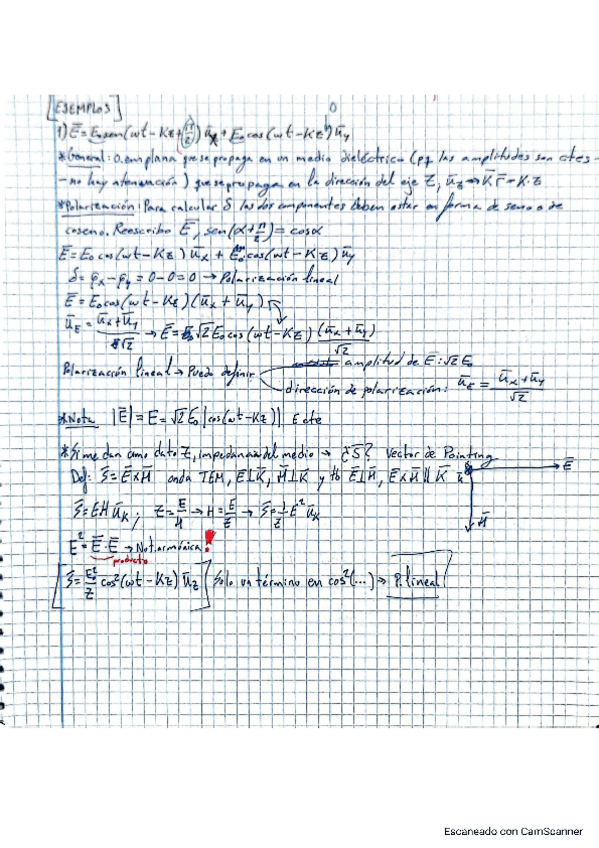 [EJEMPLOS]
0
1) Ē = E₀sen(wt - Kz + (π/2)) ūx + E₀cos(wt - Kz) ūy
*General: O. em plana que se propaga en un medio dieléctrico (pq las amplitudes son ctes -
- no hay atenuación) que se propaga en la dirección del eje Z, ūz → K̄·r̄ = K·z
*Polarización: Para calcular δ las dos componentes deben estar en forma de seno o de
coseno. Reescribo Ē, sen(α + π/2) = cosα
Ē = E₀cos(wt - Kz) ūx + E₀cos(wt - Kz) ūy
δ = φx - φy = 0 - 0 = 0 → Polarización lineal
Ē = E₀cos(wt - Kz)(ūx + ūy)
ūE = (ūx + ūy)/√2 → Ē = √2 E₀cos(wt - Kz) (ūx + ūy)/√2
amplitud de Ē: √2 E₀
Polarización lineal → Puedo definir
dirección de polarización: ūE = (ūx + ūy)/√2
*Nota |Ē| = E = √2 E₀|cos(wt - Kz)| ≠ cte
*Si me dan como dato Z, impedancia del medio → ¿S̄? Vector de Pointing
Def: S̄ = Ē×H̄ onda TEM, Ē⊥K̄, H̄⊥K̄ y tb Ē⊥H̄, Ē×H̄ ∥ K̄
Ē
H̄
S̄ = EH ūK; Z = E/H → H = E/Z → S̄ = 1/Z E² ūK
E² = Ē·Ē → Not. armónica!
producto
[S̄ = E₀²/Z cos²(wt - Kz) ūz] Sólo un término en cos²(...) → P. lineal
Escaneado con CamScanner